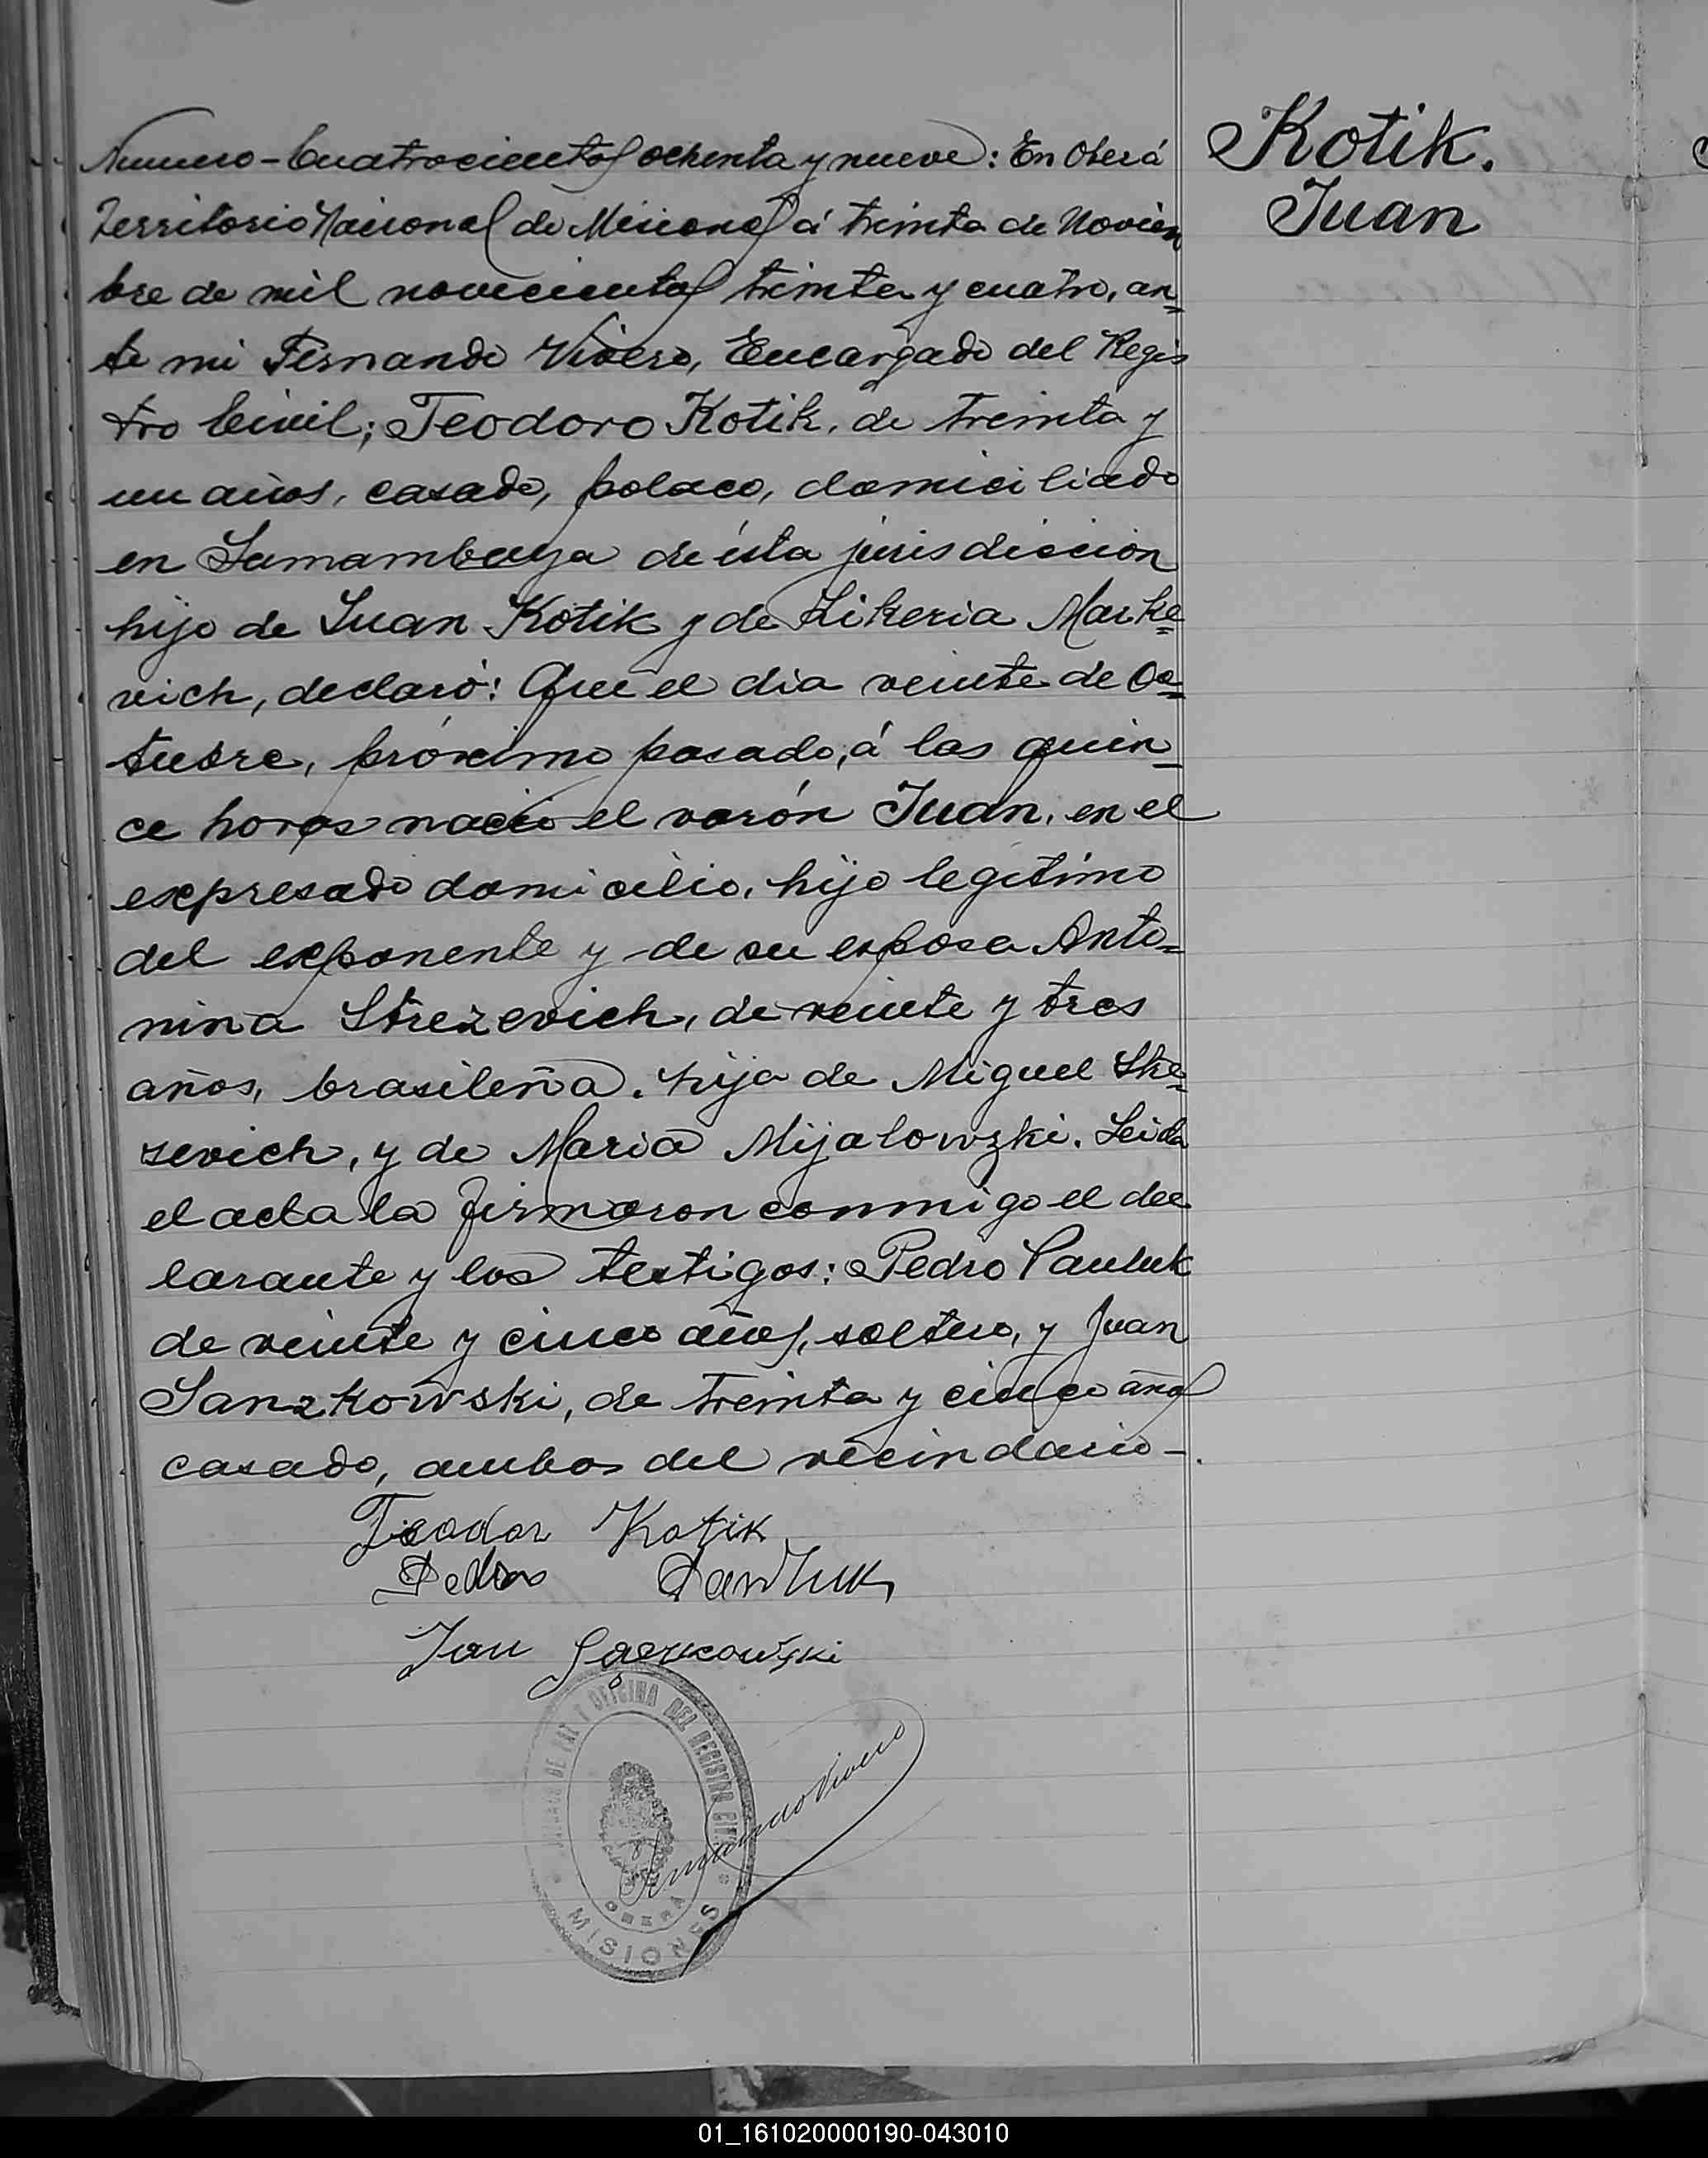 Kotik.
Juan
Numero-Cuatrocientos ochenta y nueve: En Oberá
Territorio Nacional de Misiones á treinta de Noviem
bre de mil novecientos treinta y cuatro, an=
te mi Fernando Vivero, Encargado del Regis
tro Civil; Teodoro Kotik, de treinta y
un años, casado, polaco, domiciliado
en Samambaya de ésta jurisdiccion
hijo de Juan Kotik y de Likeria Marke=
vich, declaró: Que el dia veinte de Oc=
tubre, próximo pasado, á las quin=
ce horas nació el varón Juan, en el
expresado domicilio, hijo legítimo
del exponente y de su esposa Anto=
nina Strezevich, de veinte y tres
años, brasileña. hija de Miguel Stre=
zevich, y de Maria Mijalowzki. Leida
el acta la firmaron conmigo el dec
larante y los testigos: Pedro Pauluk
de veinte y cinco años, soltero, y Juan
Sanzkowski, de treinta y cinco años
casado, ambos del vecindario-.
Teodor Kotik
Pedro Pawluk
Jan
OFICINA DEL REGISTRO CIVIL
Fernando Vivero
OBERA
MISIONES
01_161020000190-043010